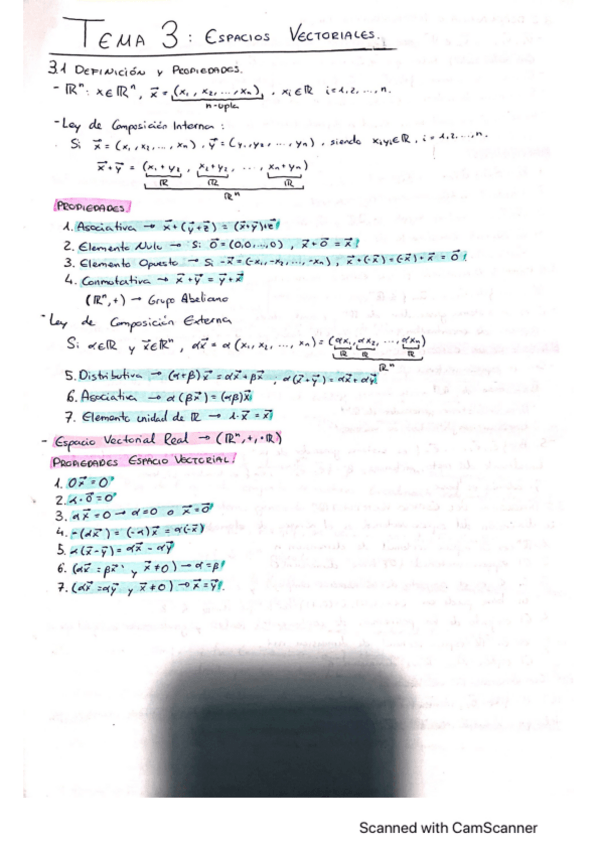 TEMA 3: ESPACIOS VECTORIALES.
3.1 DEFINICIÓN Y PROPIEDADES.
- ℝⁿ: x∈ℝⁿ, x⃗ = (x₁, x₂, ..., xₙ), xᵢ∈ℝ i=1,2,...,n.
n-upla
- Ley de Composición Interna:
Si x⃗ = (x₁, x₂, ..., xₙ), y⃗ = (y₁, y₂, ..., yₙ), siendo xᵢyᵢ∈ℝ, i=1,2,...,n.
x⃗+y⃗ = (x₁+y₂, x₂+y₂, ..., xₙ+yₙ)
ℝ ℝ ℝ
ℝⁿ
PROPIEDADES
1. Asociativa → x⃗+(y⃗+z⃗) = (x⃗+y⃗)+z⃗
2. Elemento Nulo → Si 0⃗ = (0,0,...,0), x⃗+0⃗ = x⃗
3. Elemento Opuesto → Si -x⃗ = (-x₁,-x₂,...,-xₙ), x⃗+(-x⃗) = (-x⃗)+x⃗ = 0⃗
4. Conmutativa → x⃗+y⃗ = y⃗+x⃗
(ℝⁿ,+) → Grupo Abeliano
- Ley de Composición Externa
Si α∈ℝ y x⃗∈ℝⁿ, αx⃗ = α(x₁, x₂, ..., xₙ) = (αx₁, αx₂, ..., αxₙ)
ℝ ℝ ℝ
ℝⁿ
5. Distributiva → (α+β)x⃗ = αx⃗+βx⃗, α(x⃗+y⃗) = αx⃗+αy⃗
6. Asociativa → α(βx⃗) = (αβ)x⃗
7. Elemento unidad de ℝ → 1·x⃗ = x⃗
- Espacio Vectorial Real → (ℝⁿ,+,·ℝ)
PROPIEDADES ESPACIO VECTORIAL:
1. 0x⃗ = 0⃗
2. α·0⃗ = 0⃗
3. αx⃗ = 0 → α=0 o x⃗=0⃗
4. -(αx⃗) = (-α)x⃗ = α(-x⃗)
5. α(x⃗-y⃗) = αx⃗ - αy⃗
6. (αx⃗ = βx⃗ y x⃗≠0) → α=β
7. (αx⃗ = αy⃗ y x⃗≠0) → x⃗=y⃗.
Scanned with CamScanner